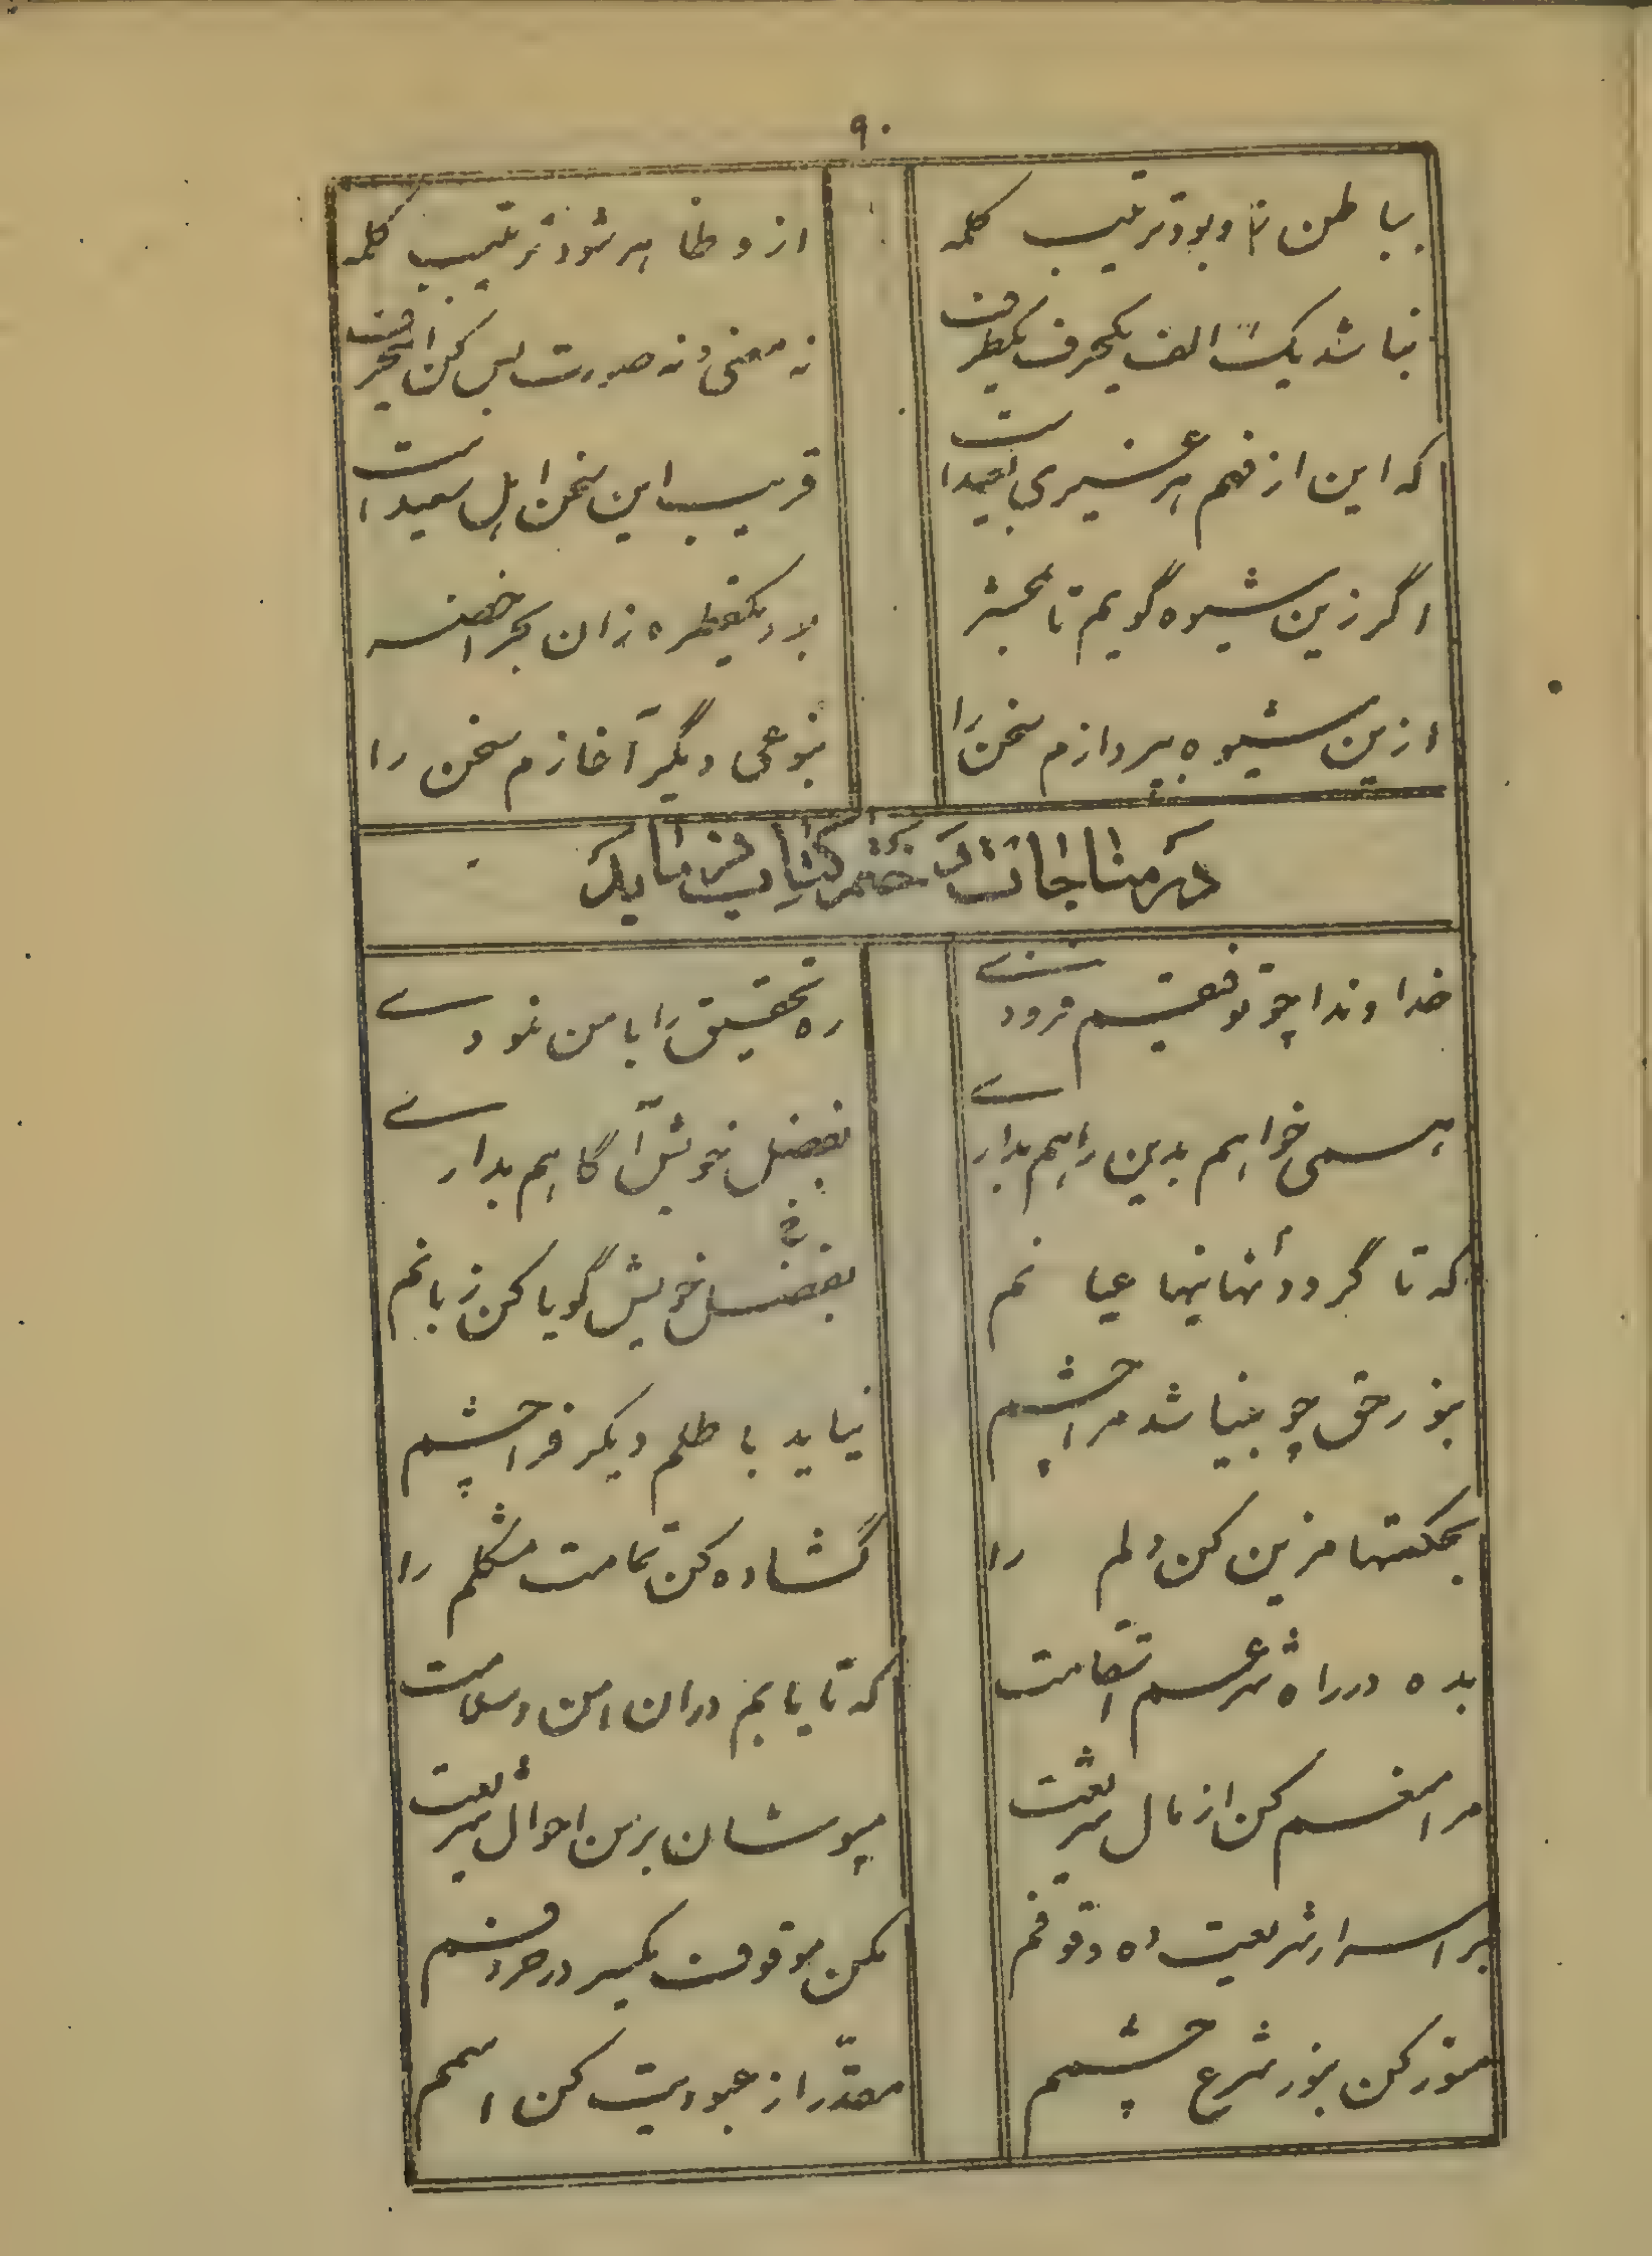 ۹۰
بباطن تا و بود ترتیب کلمه از و ظاهر شود ترتیب کلمه
نباشد یک الف یکحرف یکطرفت نه معنی و نه صورت پس کن
که این از فهم هر غیری بعیدا ست قریب این سخن اهل سعیدا ست
اگر زین شیوه گویم تا محشر بود یکقطره زان بحر اخضر
ازین شیوه بپردازم سخن را بنوعی دیگر آغازم سخن را
در مناجات ختم کتاب فرماید
خداوندا چو توفیقم فزودے ره تحقیق را با من نمودے
همی خواهم بدین راهم بدارے بفضل خویش آگاهم بدارے
که تا گردد نهانیها عیانم بفضل خویش گویا کن زبانم
بنور حق چو بینا شد مرا چشم نیاید باطلم دیگر فرا چشم
بحکمتها مزین کن دلم را گشاده کن تمامت مشکلم را
بده در راه شرعم استقامت که تا یابم دران امن و سلامت
مرا منعم کن از مال شریعت بپوشان بر من احوال شریعت
بر اسرار شریعت ده وقوفم مکن موقوف یکسر در حروفم
منور کن بنور شرع چشمم معرا از عبودیت کن اسمم